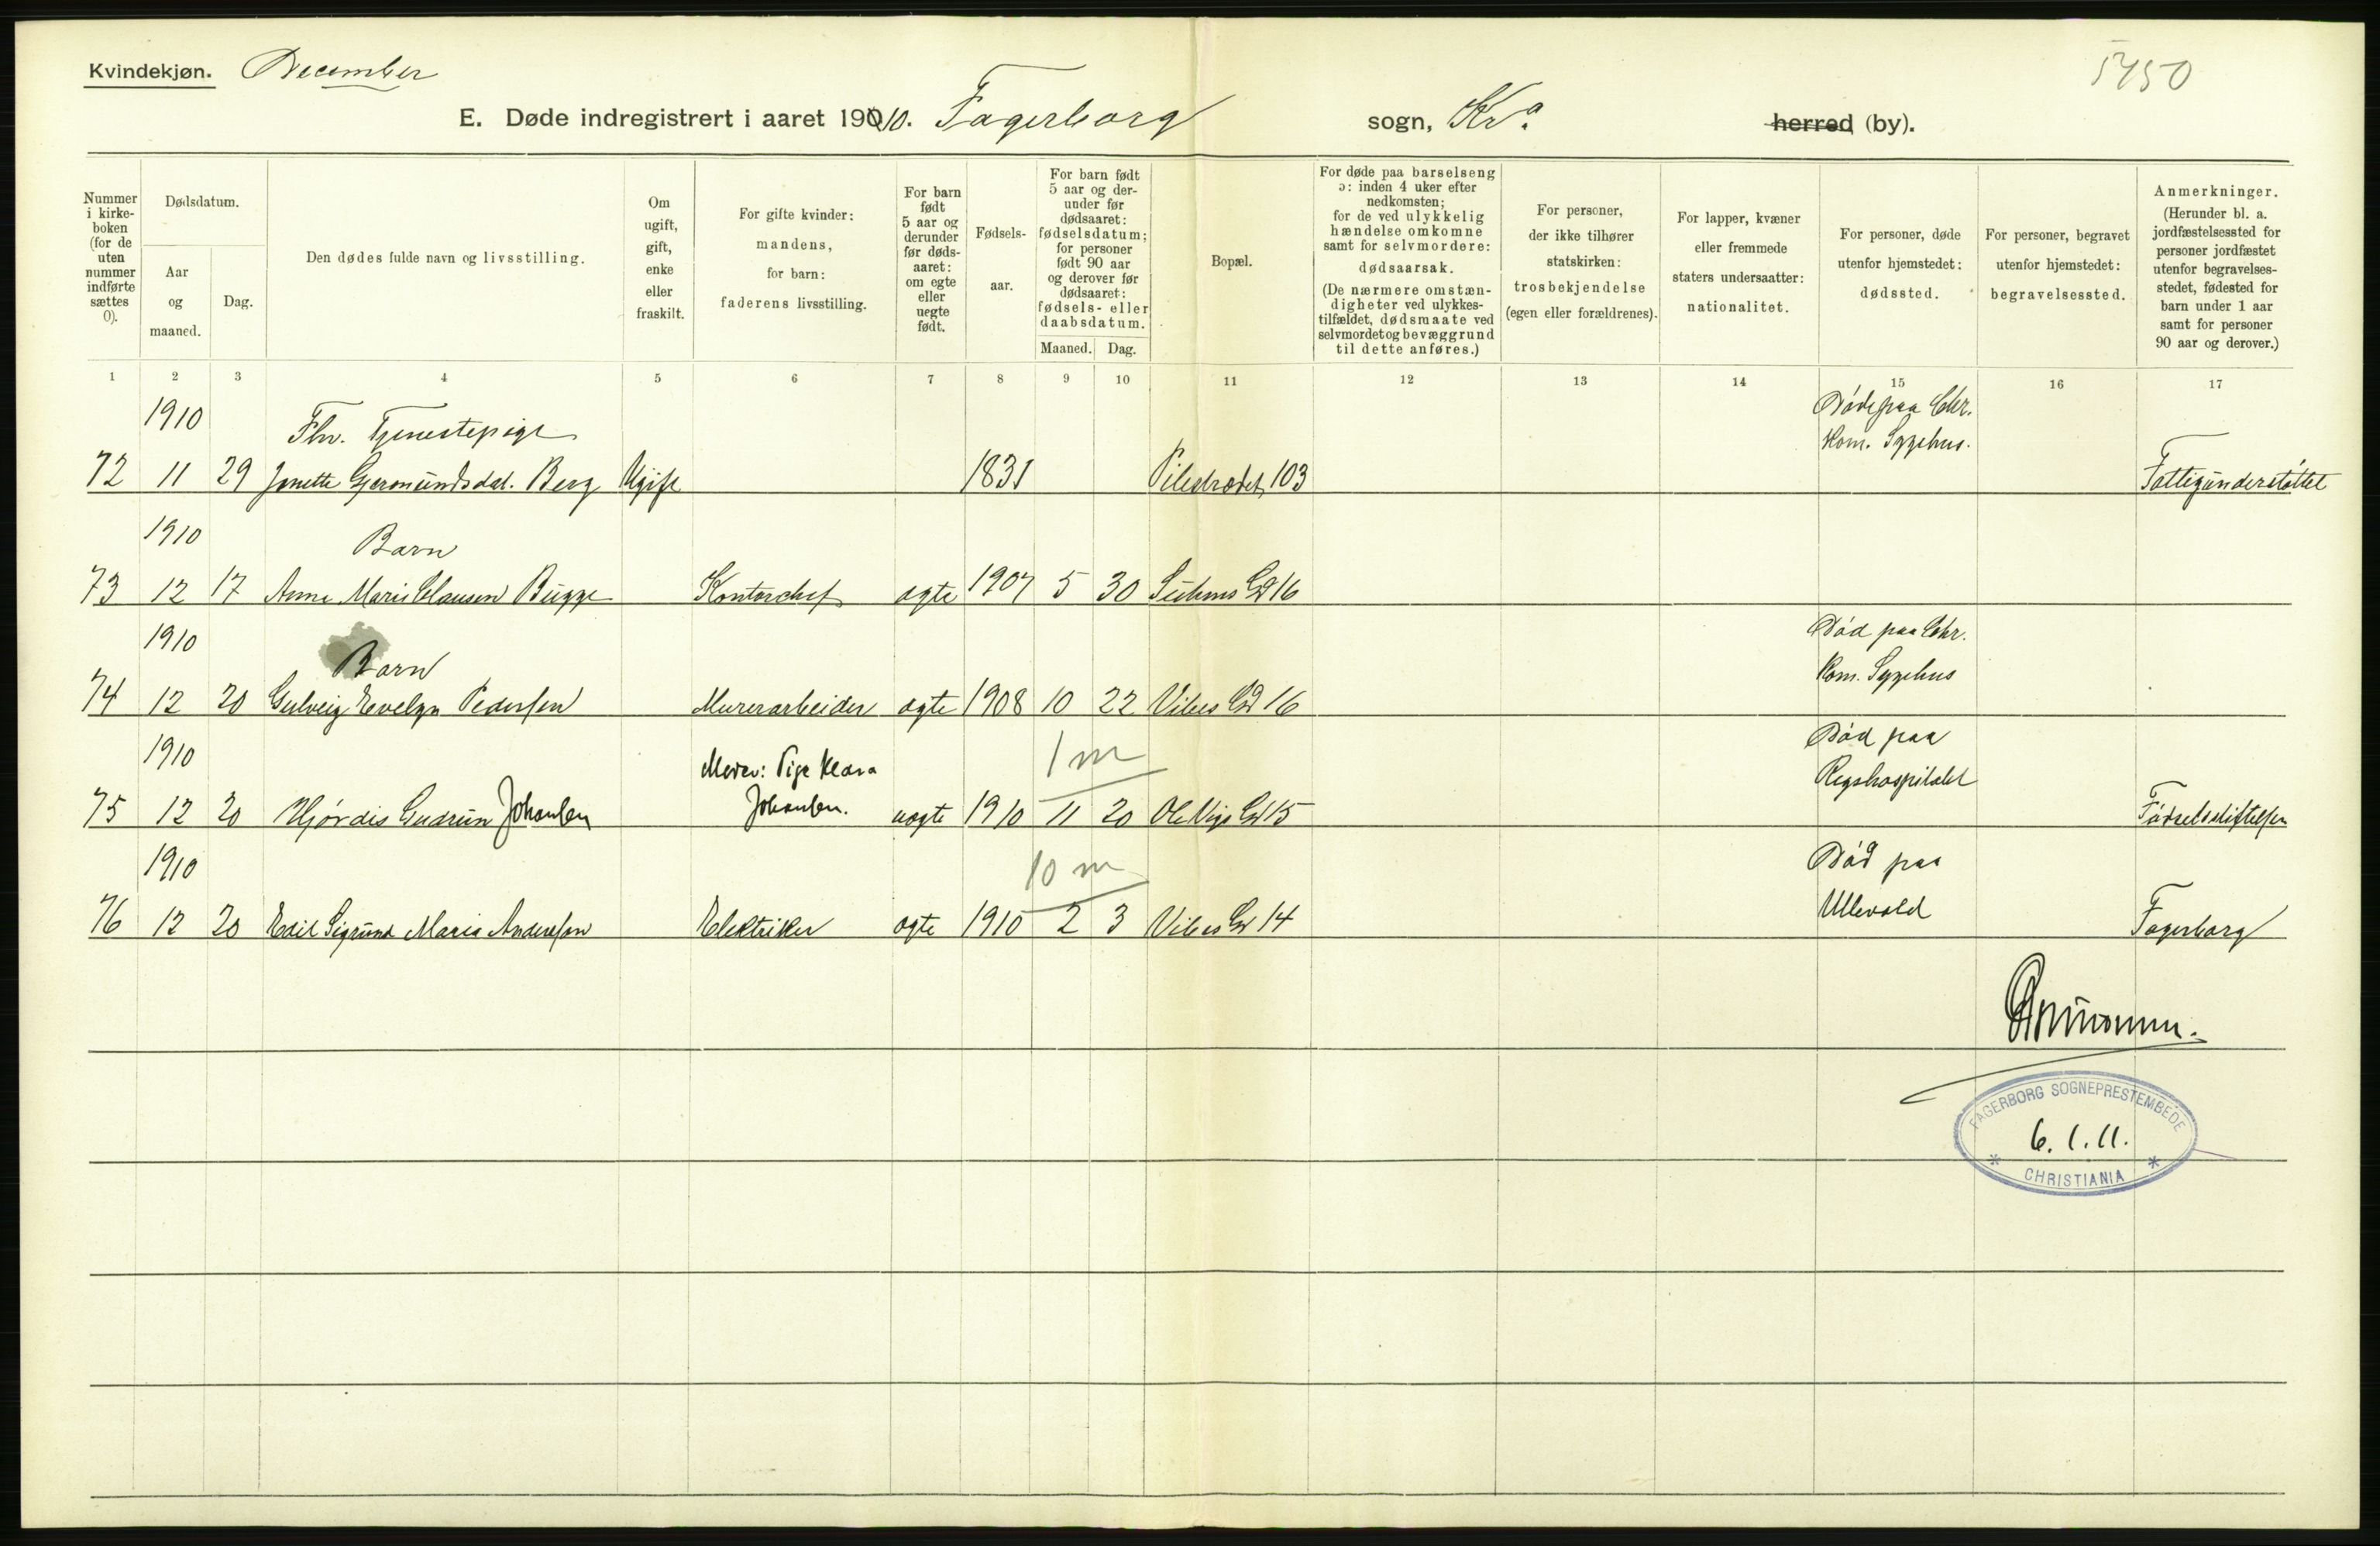 Kvindekjøn. December
5450
E. Døde indregistrert i aaret 1910. Fagerborg sogn, Kr.a herred (by).
Nummer i kirke-boken (for de uten nummer indførte sættes 0).
Dødsdatum.
Aar og maaned.
Dag.
Den dødes fulde navn og livsstilling.
Om ugift, gift, enke eller fraskilt.
For gifte kvinder: mandens, for barn: faderens livsstilling.
For barn født 5 aar og derunder før døds-aaret: om egte eller uegte født.
Fødsels-aar.
For barn født 5 aar og der-under før dødsaaret: fødselsdatum; for personer født 90 aar og derover før dødsaaret: fødsels- eller daabsdatum.
Maaned. Dag.
Bopæl.
For døde paa barselseng ɔ: inden 4 uker efter nedkomsten; for de ved ulykkelig hændelse omkomne samt for selvmordere: dødsaarsak. (De nærmere omstæn-digheter ved ulykkes-tilfældet, dødsmaate ved selvmordet og bevæggrund til dette anføres.)
For personer, der ikke tilhører statskirken: trosbekjendelse (egen eller forældrenes).
For lapper, kvæner eller fremmede staters undersaatter: nationalitet.
For personer, døde utenfor hjemstedet: dødssted.
For personer, begravet utenfor hjemstedet: begravelsessted.
Anmerkninger. (Herunder bl. a. jordfæstelsessted for personer jordfæstet utenfor begravelses-stedet, fødested for barn under 1 aar samt for personer 90 aar og derover.)
1 2 3 4 5 6 7 8 9 10 11 12 13 14 15 16 17
1910 Fhv. Tjenestepige Døde paa Chr. Kom. Sygehus.
72 11 29 Jonette Gjermundsdat. Berg Ugift 1831 Pilestrædet 103 Fattigunderstøttet
1910 Barn
73 12 17 Anna Marie Clausen Bugge Kontorchef ægte 1907 5 30 Suhms Gd 16
1910 Barn Død paa Chr. Kom. Sygehus
74 12 20 Gulveig Evelyn Pedersen Murerarbeider ægte 1908 10 22 Vibes Gd 16
1910 Moder: Pige Klara Johansen. 1 m Død paa Rigshospitalet
75 12 20 Hjørdis Gudrun Johansen uægte 1910 11 20 Ole Vigs Gd 15 Fødselsstiftelsen
1910 10 m Død paa Ullevold
76 12 20 Edit Sigrund Maria Andersen Elektriker ægte 1910 2 3 Vibes Gd 14 Fagerborg
FAGERBORG SOGNEPRESTEMBEDE
6.1.11.
* CHRISTIANIA *